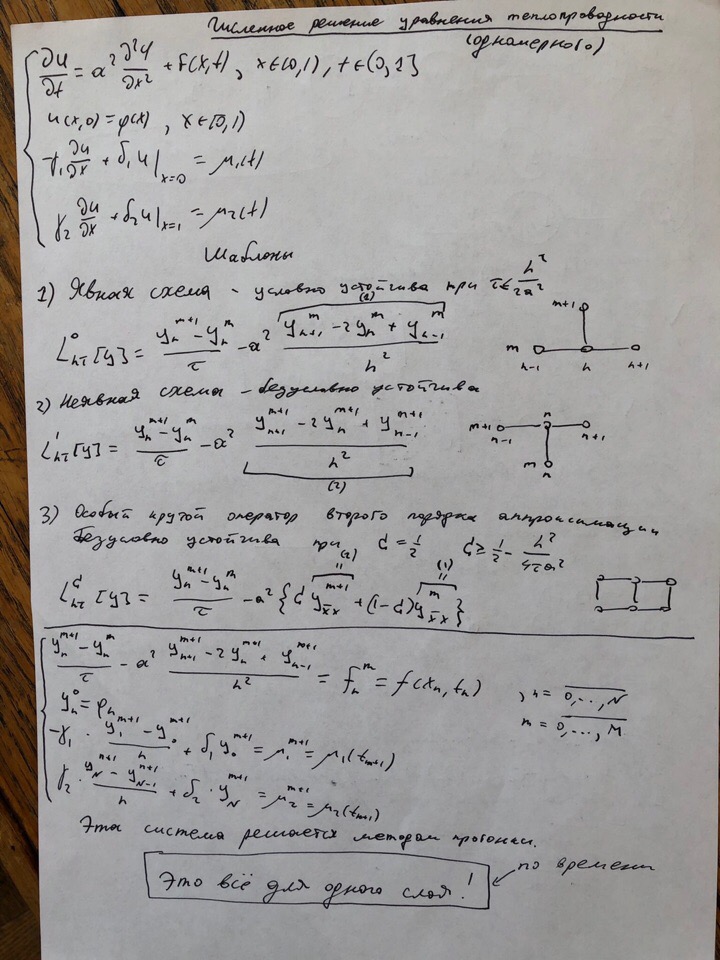 Численное решение уравнения теплопроводности
(одномерного)
∂u/∂t = a² ∂²u/∂x² + f(x,t), x∈(0,1), t∈(0,1]
u(x,0) = φ(x), x∈[0,1)
-γ₁ ∂u/∂x + δ₁u|ₓ₌₀ = μ₁(t)
γ₂ ∂u/∂x + δ₂u|ₓ₌₁ = μ₂(t)
Шаблоны
1) Явная схема - условно устойчива при τ ≤ h²/2a²
(1)
L⁰_{hτ}[y] = (y_n^{m+1} - y_n^m)/τ - a² (y_{n+1}^m - 2y_n^m + y_{n-1}^m)/h²
m+1
m n-1 n n+1
2) Неявная схема - безусловно устойчива
L¹_{hτ}[y] = (y_n^{m+1} - y_n^m)/τ - a² (y_{n+1}^{m+1} - 2y_n^{m+1} + y_{n-1}^{m+1})/h²
(2)
m+1 n-1 n n+1
m n
3) Особый крутой оператор второго порядка аппроксимации
безусловно устойчива при σ = 1/2 σ ≥ 1/2 - h²/4τa²
(2) (1)
L^σ_{hτ}[y] = (y_n^{m+1} - y_n^m)/τ - a² {σ y_{x̄x}^{m+1} + (1-σ) y_{x̄x}^m}
(y_n^{m+1} - y_n^m)/τ - a² (y_{n+1}^{m+1} - 2y_n^{m+1} + y_{n-1}^{m+1})/h² = f_n^m = f(x_n, t_n), n = 0,...,N
y_n^0 = φ_n m = 0,...,M
-γ₁ · (y_1^{m+1} - y_0^{m+1})/h + δ₁y_0^{m+1} = μ_1^{m+1} = μ₁(t_{m+1})
γ₂ · (y_N^{m+1} - y_{N-1}^{m+1})/h + δ₂ · y_N^{m+1} = μ_2^{m+1} = μ₂(t_{m+1})
Эта система решается методом прогонки.
Это всё для одного слоя!
по времени